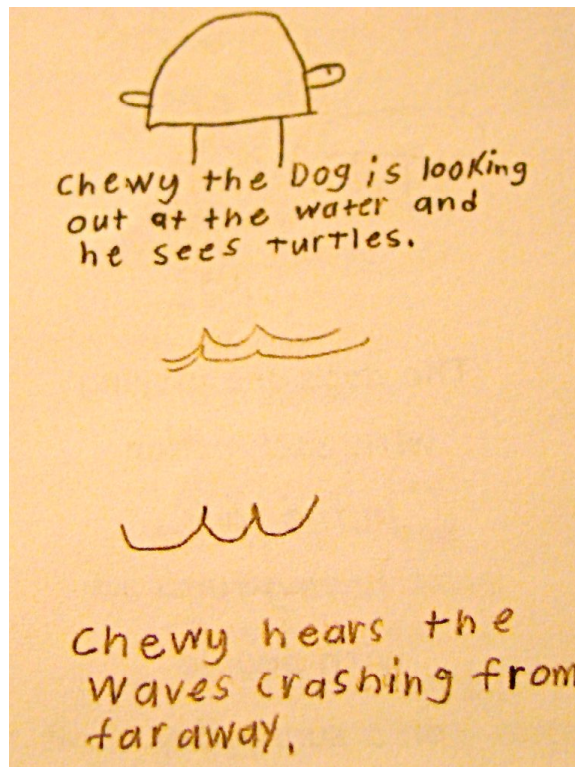 Chewy the Dog is looking
out at the water and
he sees turtles.
Chewy hears the
waves crashing from
faraway.